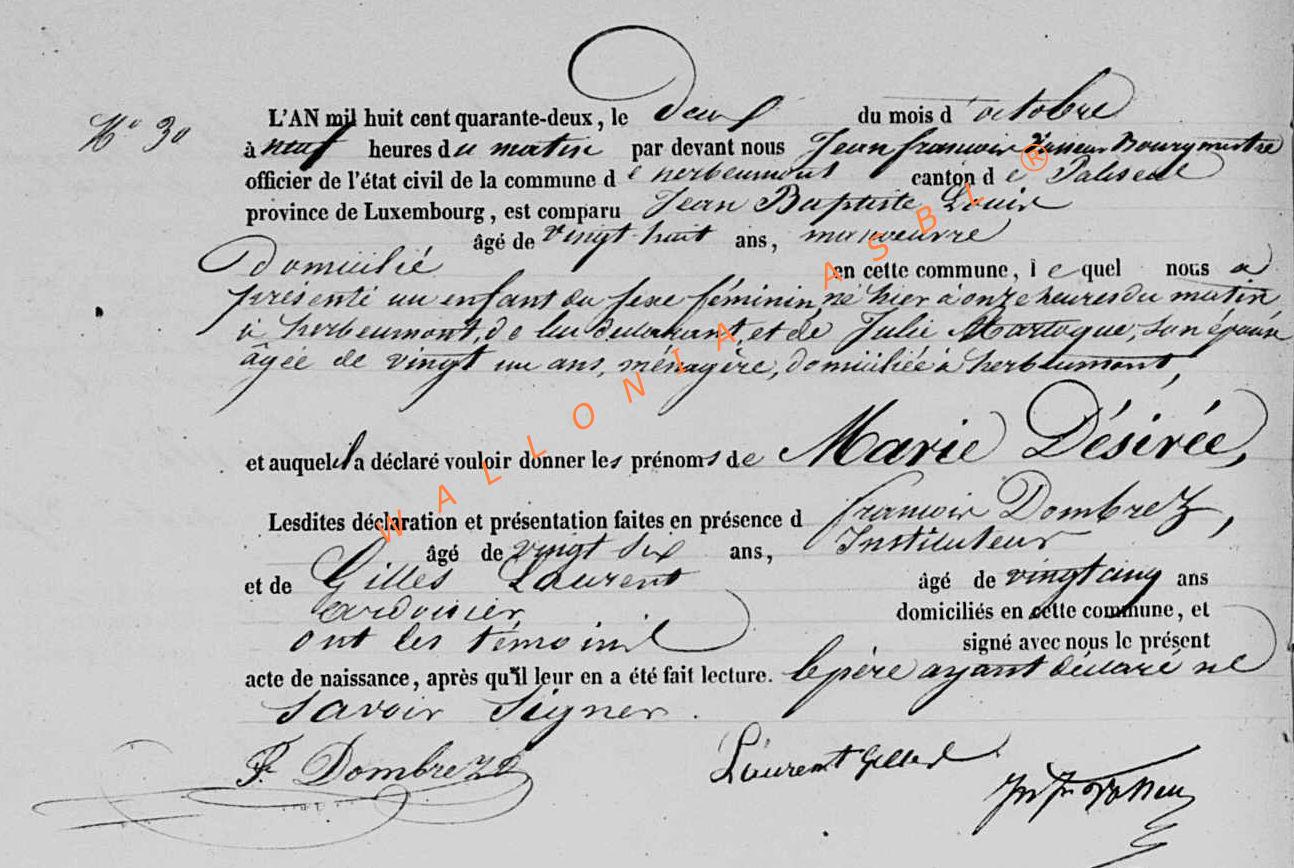 N° 30
L'AN mil huit cent quarante-deux, le deux du mois d'octobre
à neuf heures du matin par devant nous Jean françois Bourgmestre
officier de l'état civil de la commune de herbeumont canton de Paliseul
province de Luxembourg, est comparu Jean Baptiste Louis
âgé de vingt huit ans, manoeuvre
domicilié en cette commune, lequel nous a
présenté un enfant du sexe féminin, né hier à onze heures du matin
à herbeumont, de lui déclarant, et de Julie Martogue, son épouse
âgée de vingt un ans, ménagère, domiciliée à herbeumont,
et auquel il a déclaré vouloir donner les prénoms de Marie Désirée,
Lesdites déclaration et présentation faites en présence d françois Dombrez,
âgé de vingt six ans, Instituteur
et de Gilles Laurent âgé de vingt cinq ans
ardoisier, domiciliés en cette commune, et
ont les témoins signé avec nous le présent
acte de naissance, après qu'il leur en a été fait lecture. le père ayant déclaré ne
savoir signer.
F. Dombrez Laurent Gilles
WALLONIA ASBL ®